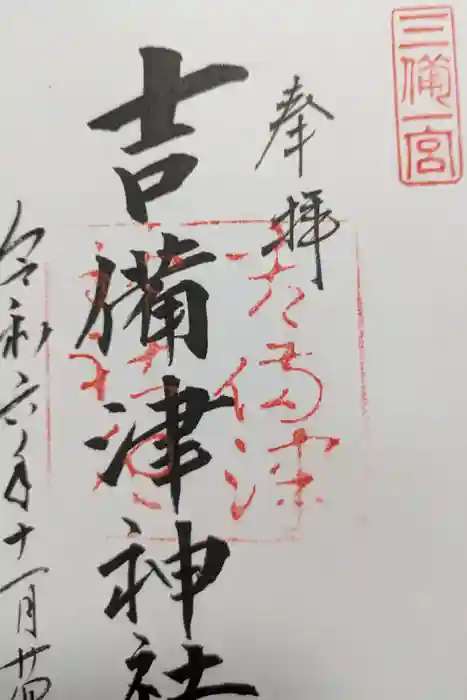 三備一宮
奉拝
吉備津神社
令和六年十一月廿四